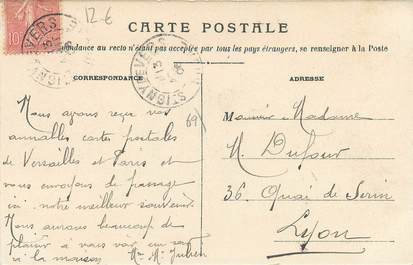 12 €
CARTE POSTALE
La Correspondance au recto n'étant pas acceptée par tous les pays étrangers, se renseigner à la Poste
CORRESPONDANCE
ADRESSE
10
ST IGNY DE VERS
69
Nous avons reçu vos
aimables cartes postales
de Versailles et Paris et
vous envoyons de passage
ici notre meilleur souvenir.
Nous aurons beaucoup de
plaisir à vous voir
à la maison Mr Mme Julien
Monsieur Madame
N. Dufour
36 Quai de Serin
Lyon